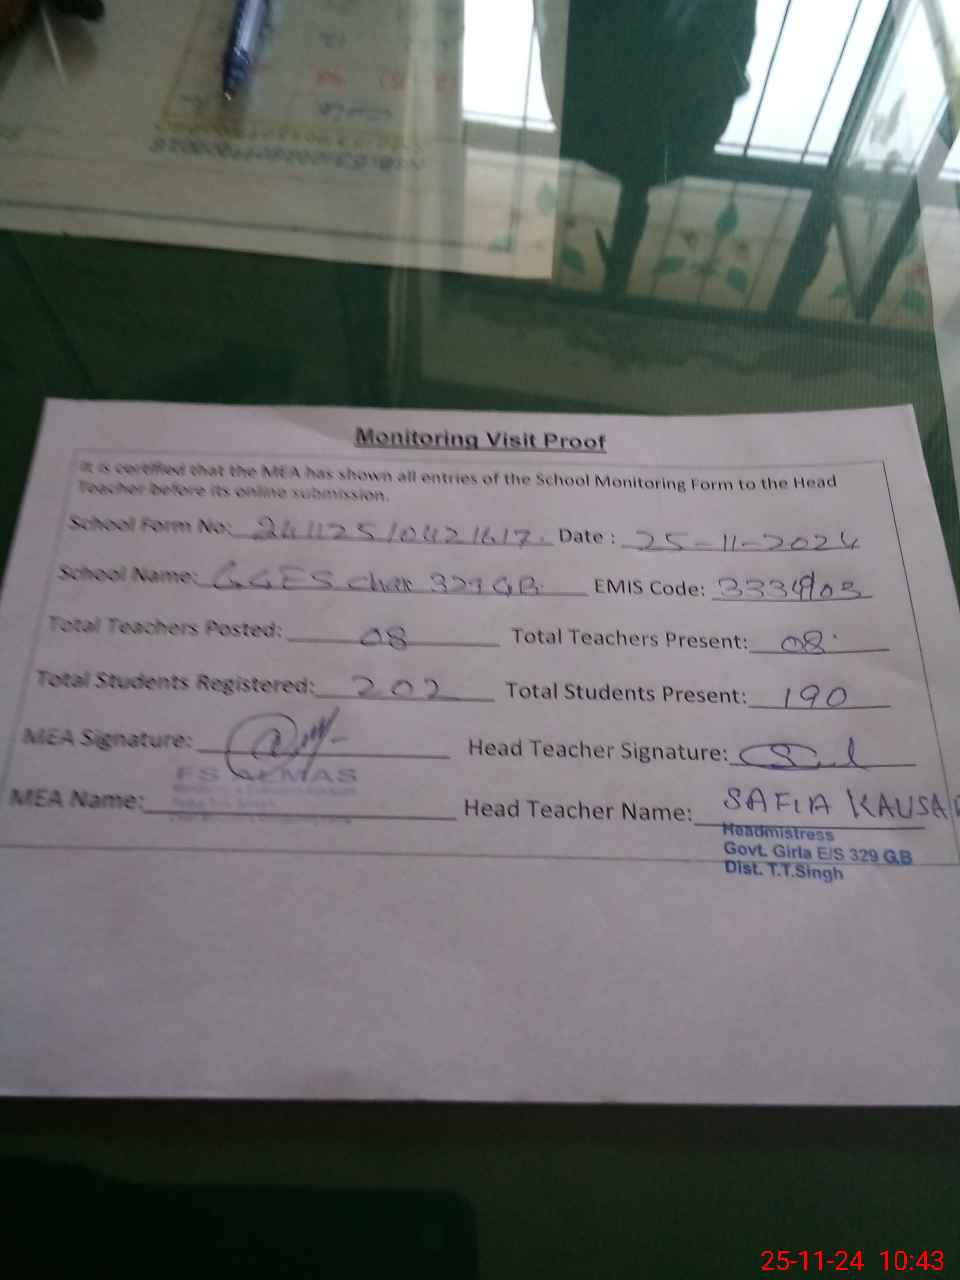 Monitoring Visit Proof
It is certified that the MEA has shown all entries of the School Monitoring Form to the Head
Teacher before its online submission.
School Form No: 24112510421417 Date : 25-11-2024
School Name: GGES Chak 329 GB EMIS Code:
Total Teachers Posted: 08 Total Teachers Present: 08
Total Students Registered: 202 Total Students Present: 190
MEA Signature: Head Teacher Signature:
ALMAS
MEA Name: Head Teacher Name: SAFIA KAUSAR
Headmistress
Govt. Girls E/S 329 G.B
Dist. T.T.Singh
25-11-24 10:43